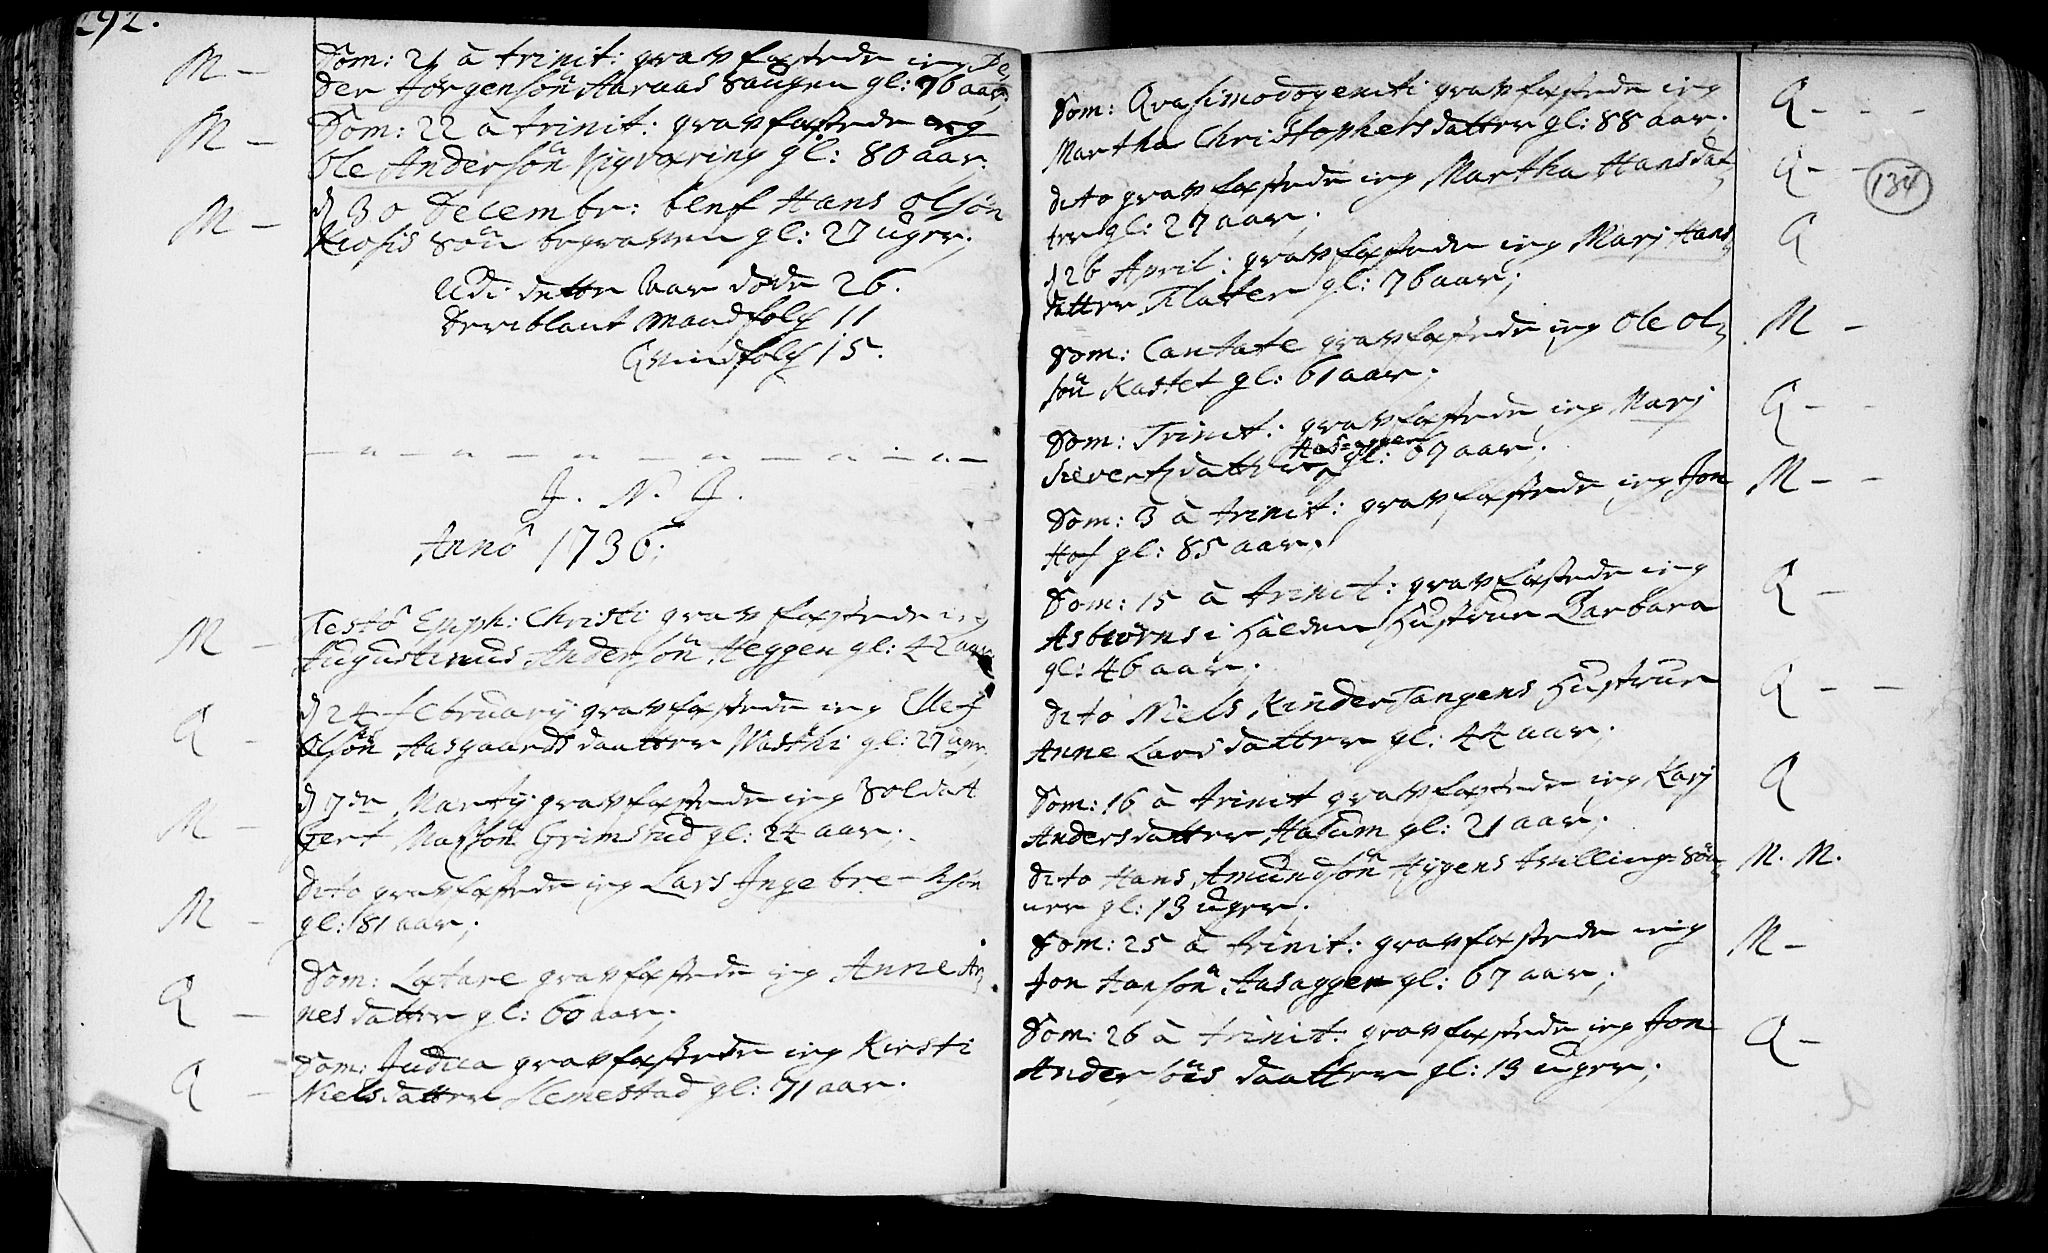 292.
M - Dom: 21 à trinit: gravfæstede ieg Pe,
der Jörgensön Aaraas gl: 76 aar,
M - Dom: 22 à trinit: gravfæstede ieg
Ole Andersön gl: 80 aar;
M - d 30 Decembr: blef Hans olsön
sön begraven gl: 27 uger;
Udi dette Aar döde 26.
Deriblant Mandfolch 11
Qvindfolch 15.
J. N. J.
Anno 1736;
M - Festo Epiph: Christi gravfæstede ieg
Augustinus Andersön Heggen gl: 42 aar
Q - d 24 February gravfæstede ieg Ellef
Olsöns Aasgaards daatter Marthi gl: 27 uger,
M - d 7de Martij gravfæstede ieg Soldat
Gert Maxsön Grimsrud gl: 24 aar;
M - dito gravfæstede ieg Lars Ingebre-tsön
gl: 81 aar;
Q - Dom: Lætare gravfæstede ieg Anne Ar,
nesdatter gl: 60 aar;
Q - Dom: Judica gravfæstede ieg Kirsti
Nielsdatter Slemestad gl: 71 aar.
134
Dom: Qvasimodogeniti gravfæstede ieg Q - -
Martha Christophersdatter gl: 88 aar;
dito gravfæstede ieg Martha Hansdat, Q - -
ter gl: 27 aar;
d 26 April: gravfæstede ieg Marj Hans, Q
datter Flatten gl: 76 aar;
Dom: Cantate gravfæstede ieg Ole ol, M -
sön Kastet gl: 61 aar;
Dom: Trinit: gravfæstede ieg Marj Q - -
Sievertzdatter Aasaggen gl: 67 aar.
Dom: 3 à trinit: gravfæstede ieg Jon M - -
Hof gl: 85 aar;
Dom: 15 à trinit: gravfæstede ieg Q -
Asbiörns i Hustrue Barbara
gl: 46 aar;
dito Niels Kindertangens Hustrue Q - -
Anne Larsdatter gl: 44 aar;
Dom: 16 à trinit gravfæstede ieg Karj Q
Andersdatter Haslum gl: 21 aar;
dito Hans Amundsön Hygens trilling-sön, M. M.
ner gl: 13 uger;
Dom: 25 à trinit: gravfæstede ieg M -
Jon Hansön Aasaggen gl: 67 aar;
Dom: 26 à trinit: gravfæstede ieg Jon Q -
Andersöns daatter gl: 13 uger;